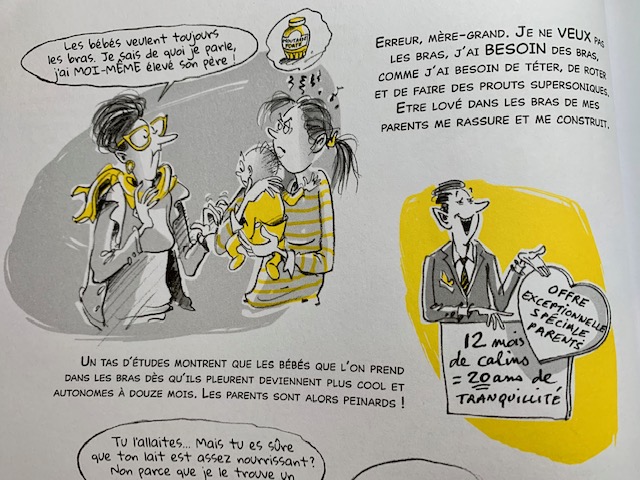 Les bébés veulent toujours
les bras. Je sais de quoi je parle,
j'ai MOI-MÊME élevé son père !
MOUTARDE
FORTE
ERREUR, MÈRE-GRAND. JE NE VEUX PAS
LES BRAS, J'AI BESOIN DES BRAS,
COMME J'AI BESOIN DE TÉTER, DE ROTER
ET DE FAIRE DES PROUTS SUPERSONIQUES.
ETRE LOVÉ DANS LES BRAS DE MES
PARENTS ME RASSURE ET ME CONSTRUIT.
OFFRE
EXCEPTIONNELLE
SPÉCIALE
PARENTS
12 mois
de calins
= 20 ans de
TRANQUILLITÉ
UN TAS D'ÉTUDES MONTRENT QUE LES BÉBÉS QUE L'ON PREND
DANS LES BRAS DÈS QU'ILS PLEURENT DEVIENNENT PLUS COOL ET
AUTONOMES À DOUZE MOIS. LES PARENTS SONT ALORS PEINARDS !
Tu l'allaites... Mais tu es sûre
que ton lait est assez nourrissant?
Non parce que je le trouve un